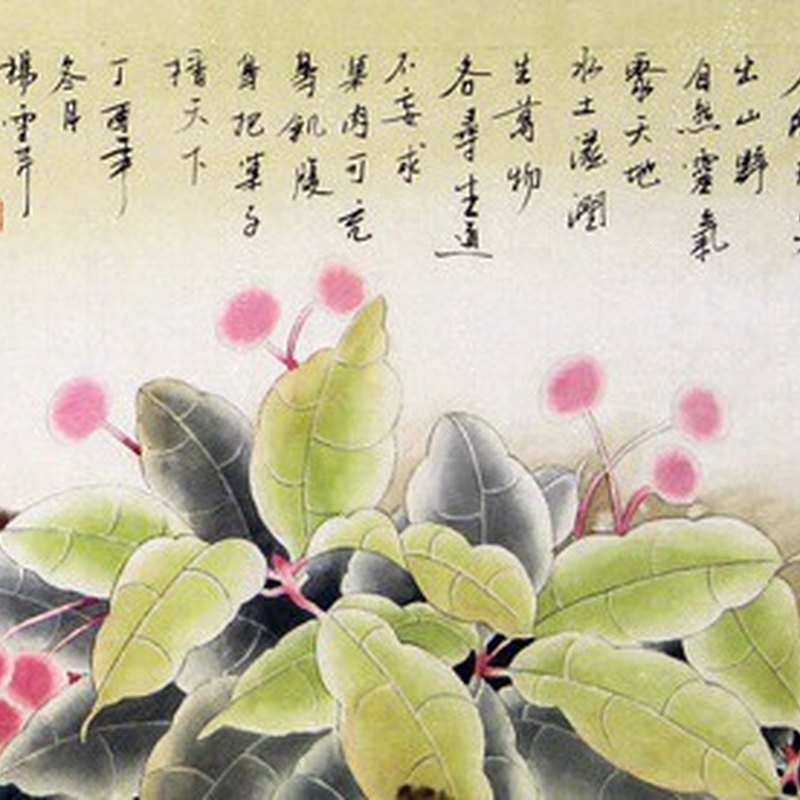 出山野
自然灵氣
露天地
水土滋潤
生萬物
各尋生道
不妄求
葉肉可充
身飢腹
身把葉子
播天下
丁酉年
冬月
楊雪萍